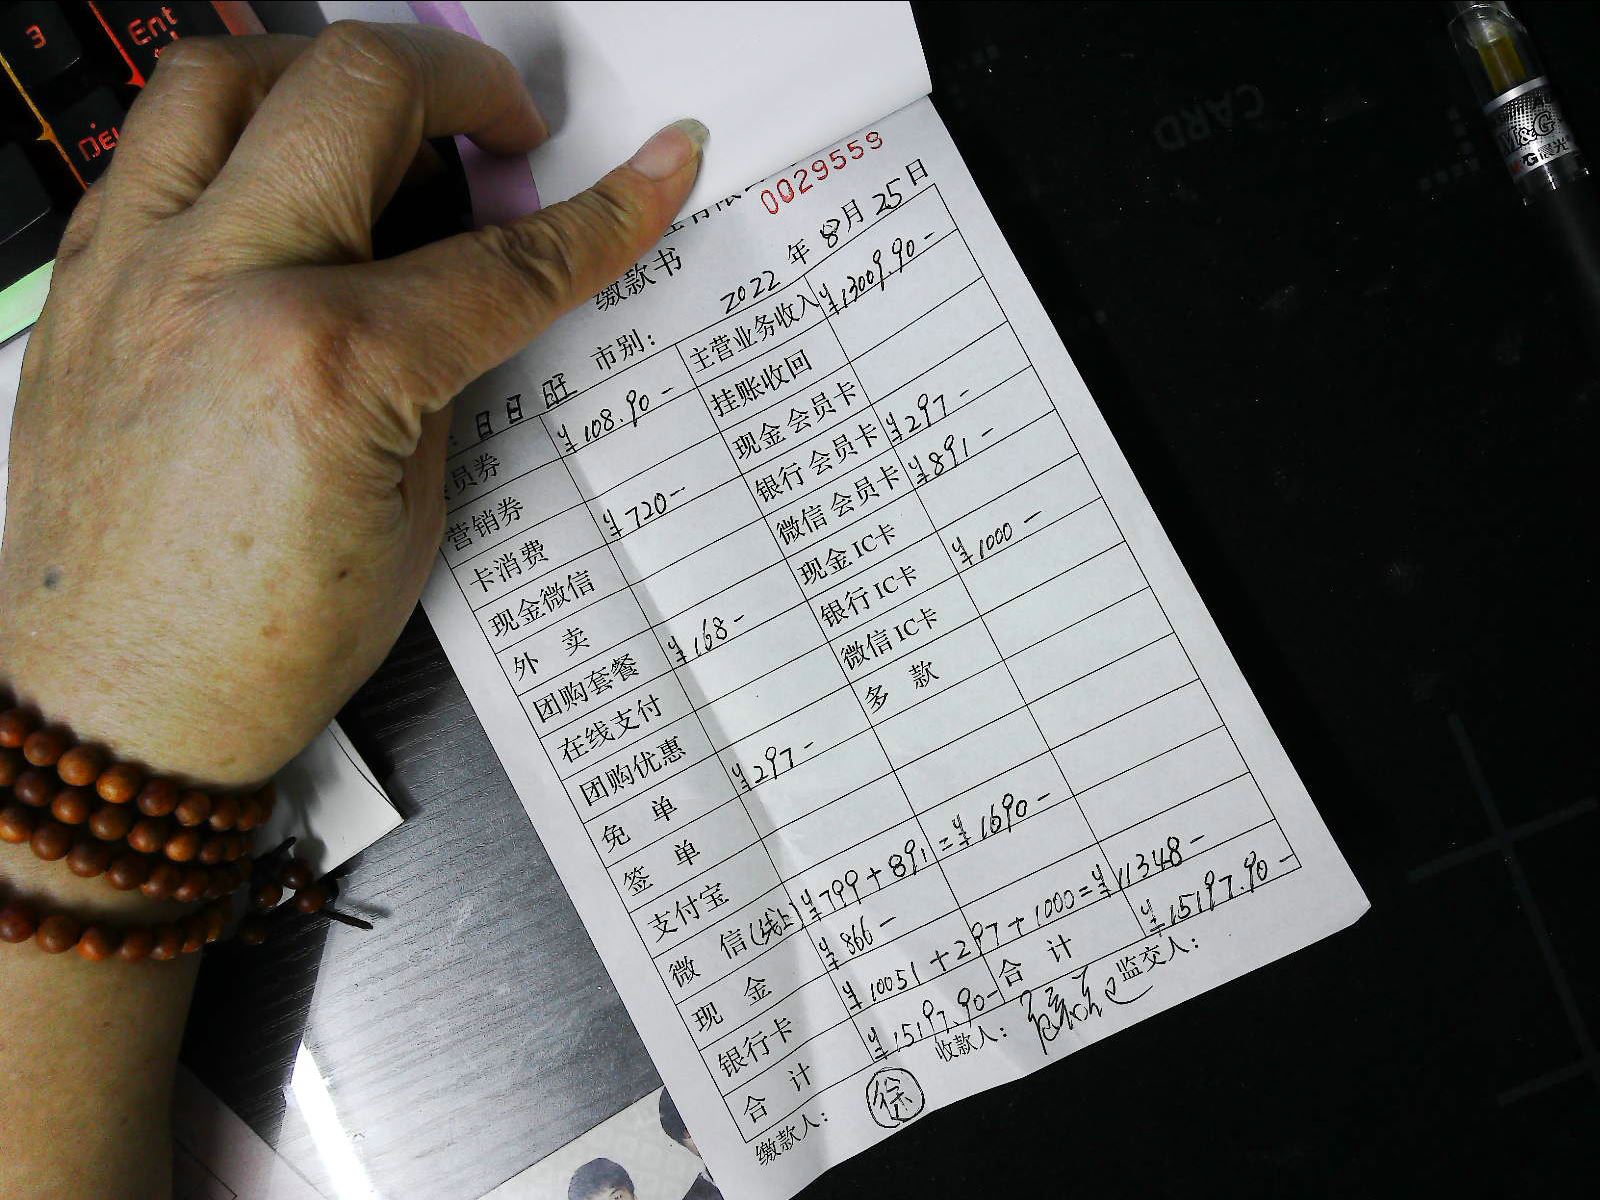 3
Ent
DEL
CARD
M&G
M&G晨光
0029559
缴款书
2022年8月25日
日日旺 市别：
员券 ¥108.90- 主营业务收入 ¥13009.90-
营销券 挂账收回
卡消费 ¥720- 现金会员卡
现金微信 银行会员卡 ¥297-
外卖 微信会员卡 ¥891-
团购套餐 ¥168- 现金IC卡
在线支付 银行IC卡 ¥1000-
团购优惠 微信IC卡
免单 ¥297- 多款
签单
支付宝
微信(线上) ¥799+891=¥1690-
现金 ¥866-
银行卡 ¥10051+297+1000=¥11348-
合计 ¥15197.90- 合计 ¥15197.90-
缴款人： 徐 收款人： 监交人：